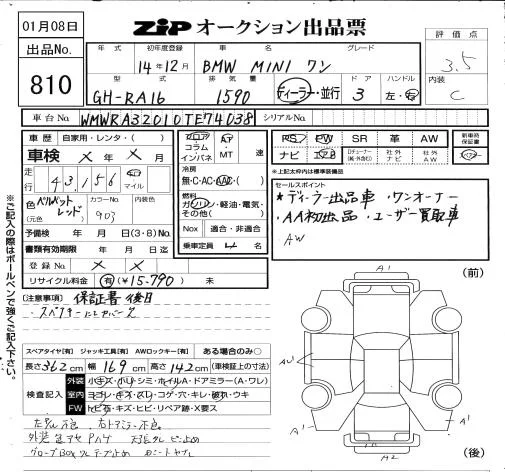 01月08日
ZIPオークション出品票
出品No.
810
年式
初年度登録
車名
グレード
評価点
14年12月
BMW MINI ワン
3.5
型式
排気量
ドア
ハンドル
内装
GH-RA16
1590
ディーラー・並行
3
左・右
C
車台No.
WMWRA32010TE74038
シリアルNo.
車歴
自家用・レンタ・( )
車検
×年×月
走行
43,156
km
マイル
色
ベルベットレッド
(元色)
カラーNo.
903
内装色
予備検
年 月 日(3・8)No.
書類有効期限
年 月 日迄
登録No.
× ×
リサイクル料金
有(¥15,790) 未
フロア
コラム
インパネ
AT
MT
速
冷房
無・C・AC・AAC・( )
燃料
ガソリン・軽油・電気・
その他( )
Nox
適合・非適合
乗車定員
4名
PS
PW
SR
革
AW
新車時保証書
ナビ
エアB
社外ナビ
社外AW
*上記太枠内は標準装備品
セールスポイント
*ディーラー出品車・ワンオーナー
・AA初出品・ユーザー買取車
AW
【注意事項】
保証書後日
※ご記入の際はボールペンで強くご記入下さい。
スペアタイヤ[有] ジャッキ工具[有] AWロックキー[有] ある場合のみ○
長さ362cm 幅169cm 高さ142cm (車検証の寸法)
検査記入
外装
小キズ・小ヘコ・シミ・ホイルA・ドアミラー(A・ワレ)
室内
ヨゴレ・キズ・スレ・コゲ・穴・キレ・破れ・ウキ
FW
トビ石・キズ・ヒビ・リペア跡・X要ス
(前)
A1
A1
AU1
A1
A2
(後)